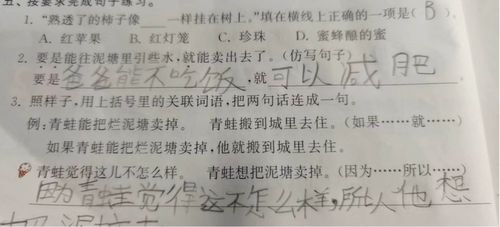 五、按要求完成句子练习。
1. “熟透了的柿子像____一样挂在树上。”填在横线上正确的一项是( B )。
A. 红苹果 B. 红灯笼 C. 珍珠 D. 蜜蜂酿的蜜
2. 要是能往泥塘里引些水,就能卖出去了。(仿写句子)
要是爸爸能不吃饭,就可以减肥
3. 照样子,用上括号里的关联词语,把两句话连成一句。
例:青蛙能把烂泥塘卖掉。 青蛙搬到城里去住。(如果……就……)
如果青蛙能把烂泥塘卖掉,他就搬到城里去住。
青蛙觉得这儿不怎么样。 青蛙想把泥塘卖掉。(因为……所以……)
因为青蛙觉得这不怎么样,所以他想
把泥塘卖